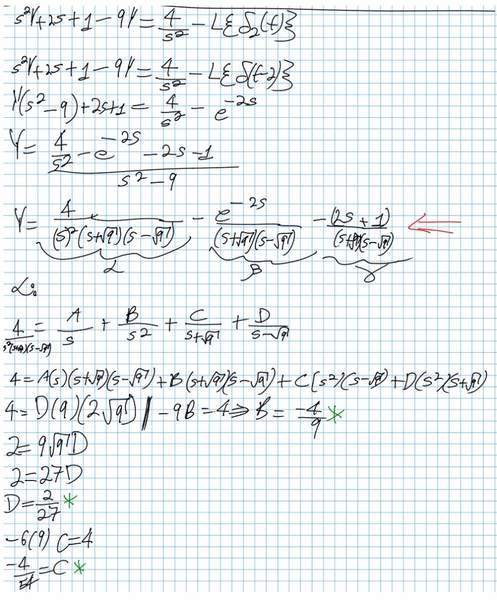 s²Y+2s+1-9Y=4/s²-L{δ₂(t)}
s²Y+2s+1-9Y=4/s²-L{δ(t-2)}
Y(s²-9)+2s+1=4/s²-e^(-2s)
Y=(4/s²-e^(-2s)-2s-1)/(s²-9)
Y=4/((s)²(s+√9)(s-√9))-e^(-2s)/((s+√9)(s-√9))-(2s+1)/((s+√9)(s-√9))
α β γ
α:
4/(s²(s+√9)(s-√9))=A/s+B/s²+C/(s+√9)+D/(s-√9)
4=A(s)(s+√9)(s-√9)+B(s+√9)(s-√9)+C(s²)(s-√9)+D(s²)(s+√9)
4=D(9)(2√9)∥-9B=4⇒B=-4/9*
2=9√9D
2=27D
D=2/27*
-6(9)C=4
-4/54=C*